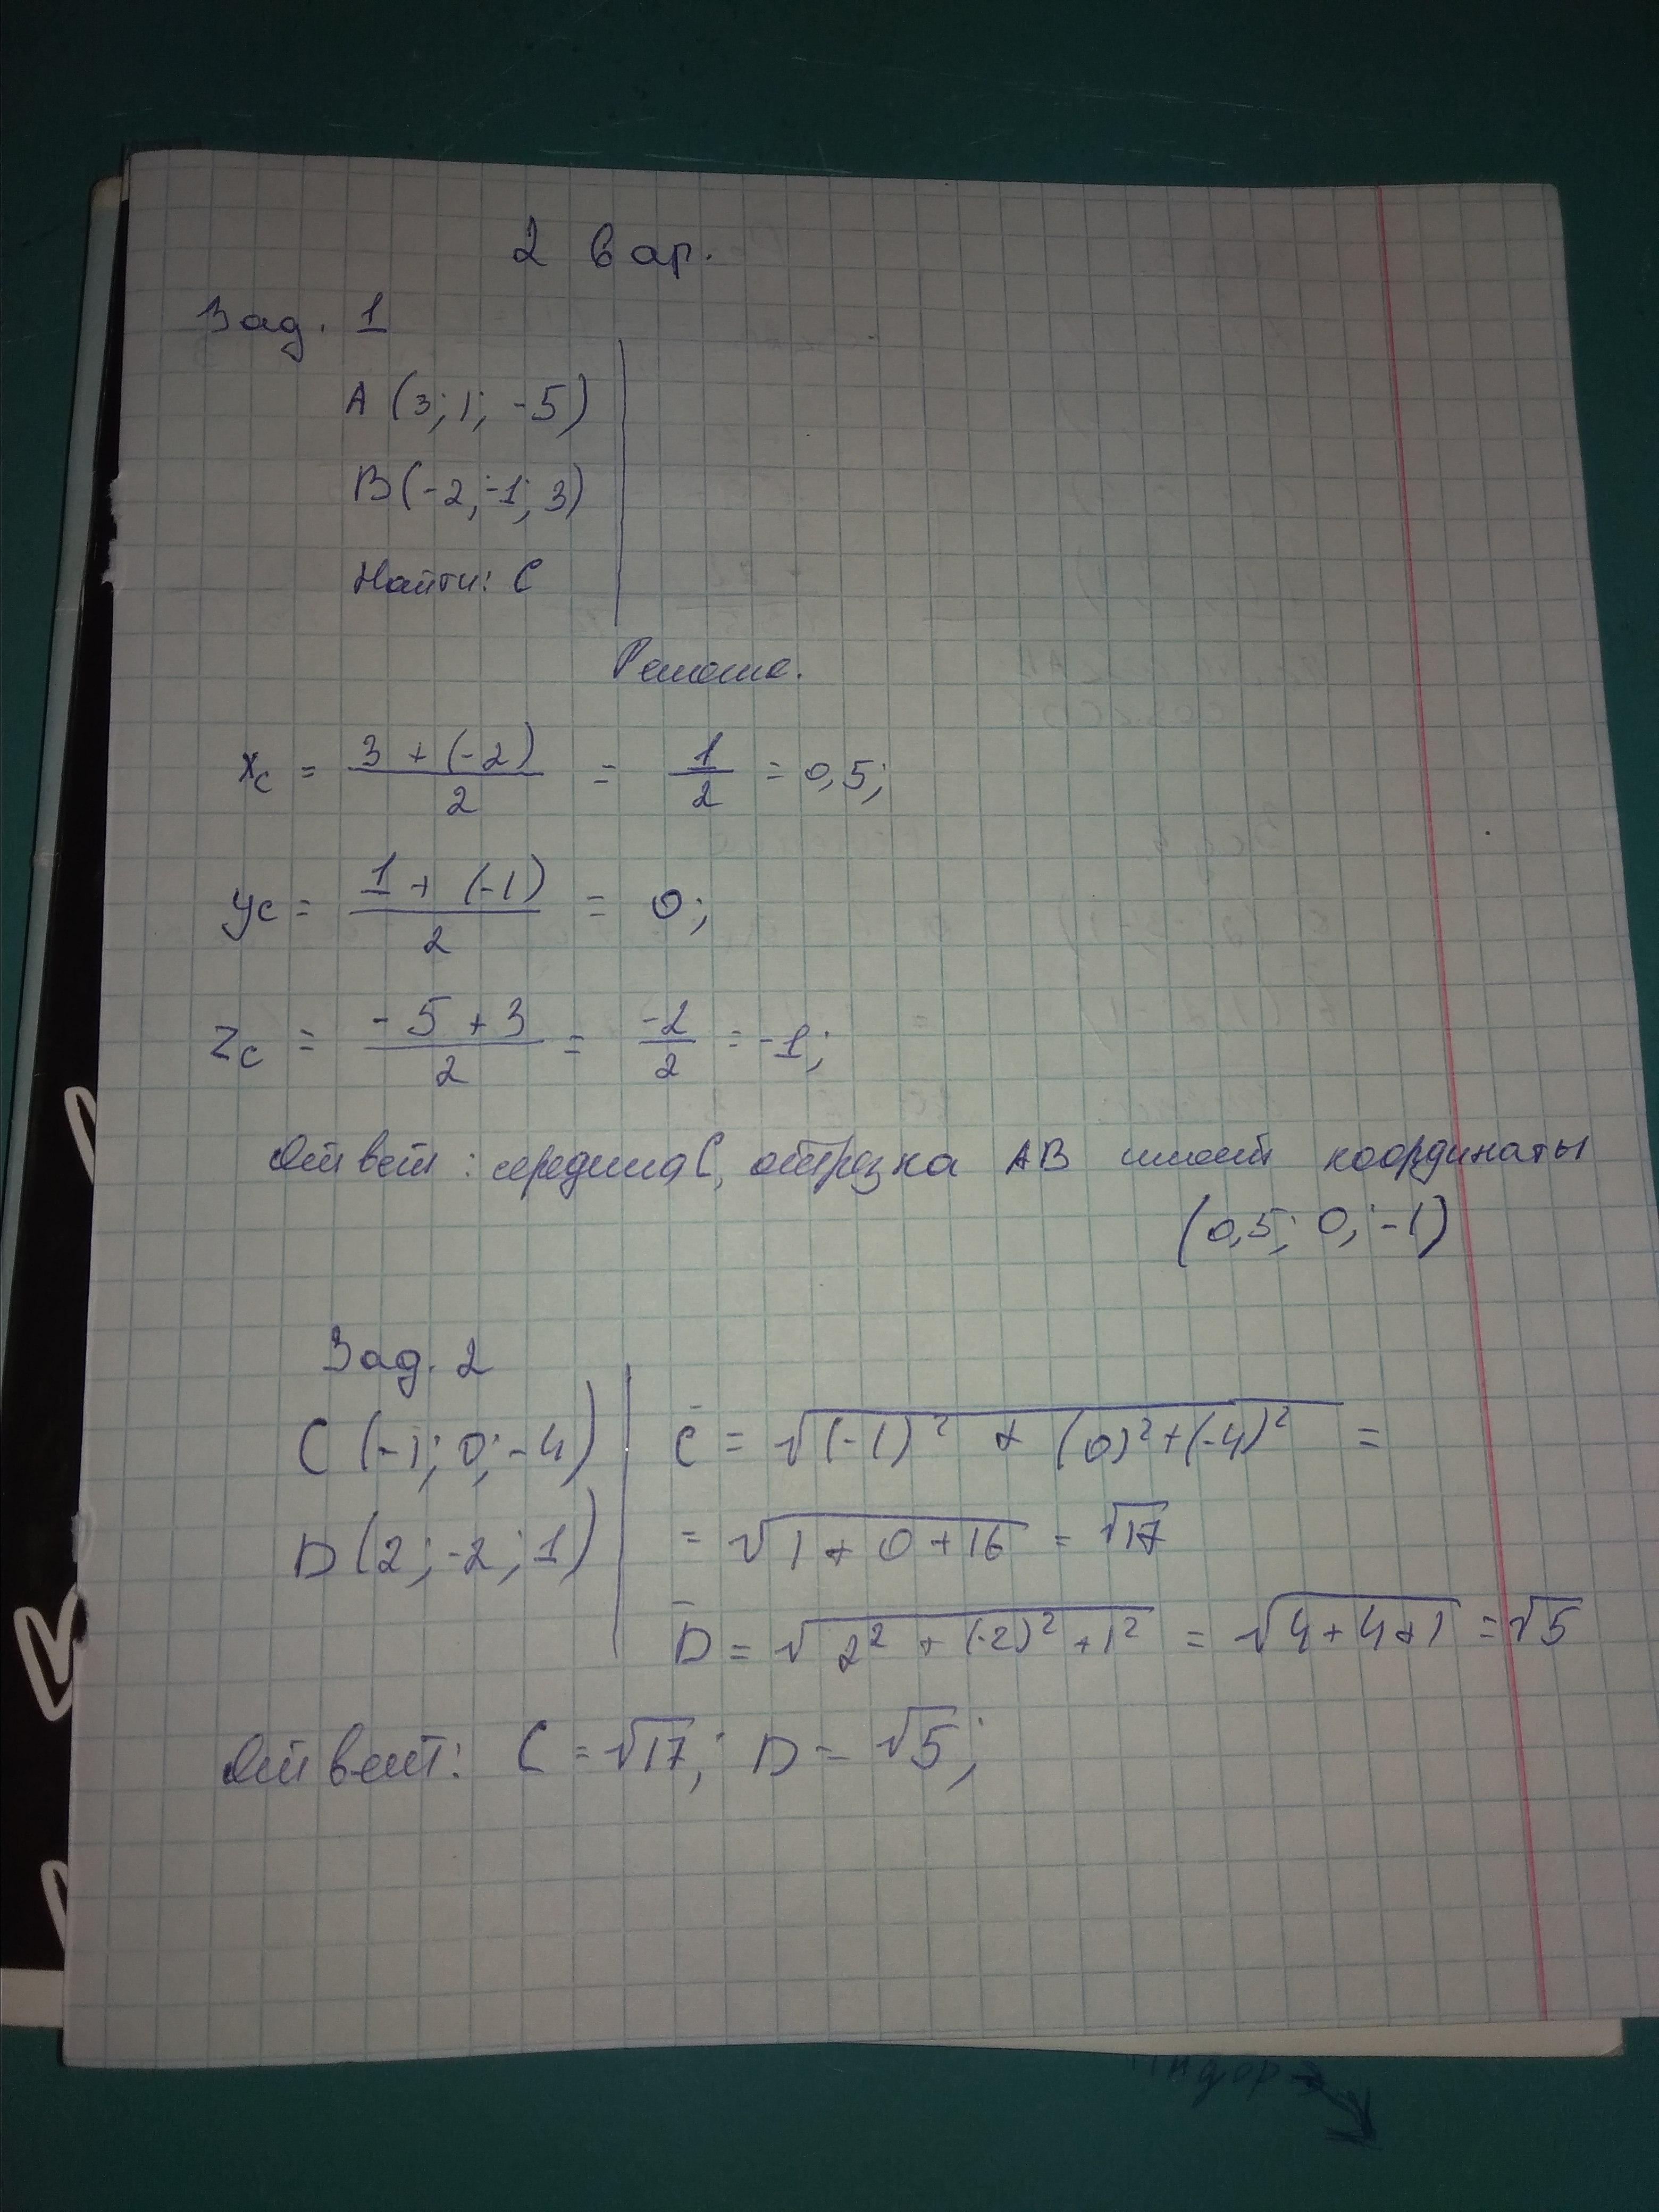 2 вар.
Зад. 1
A (3; 1; -5)
B (-2; -1; 3)
Найти: C
Решение.
xc = 3 + (-2) / 2 = 1 / 2 = 0,5;
yc = 1 + (-1) / 2 = 0;
zc = -5 + 3 / 2 = -2 / 2 = -1;
Ответ: середина C, отрезка AB имеет координаты
(0,5; 0; -1)
Зад. 2
C (-1; 0; -4)
D (2; -2; 1)
c̄ = √(-1)² + (0)² + (-4)² =
= √1 + 0 + 16 = √17
D̄ = √2² + (-2)² + 1² = √4 + 4 + 1 = √5
Ответ: C = √17; D = √5;